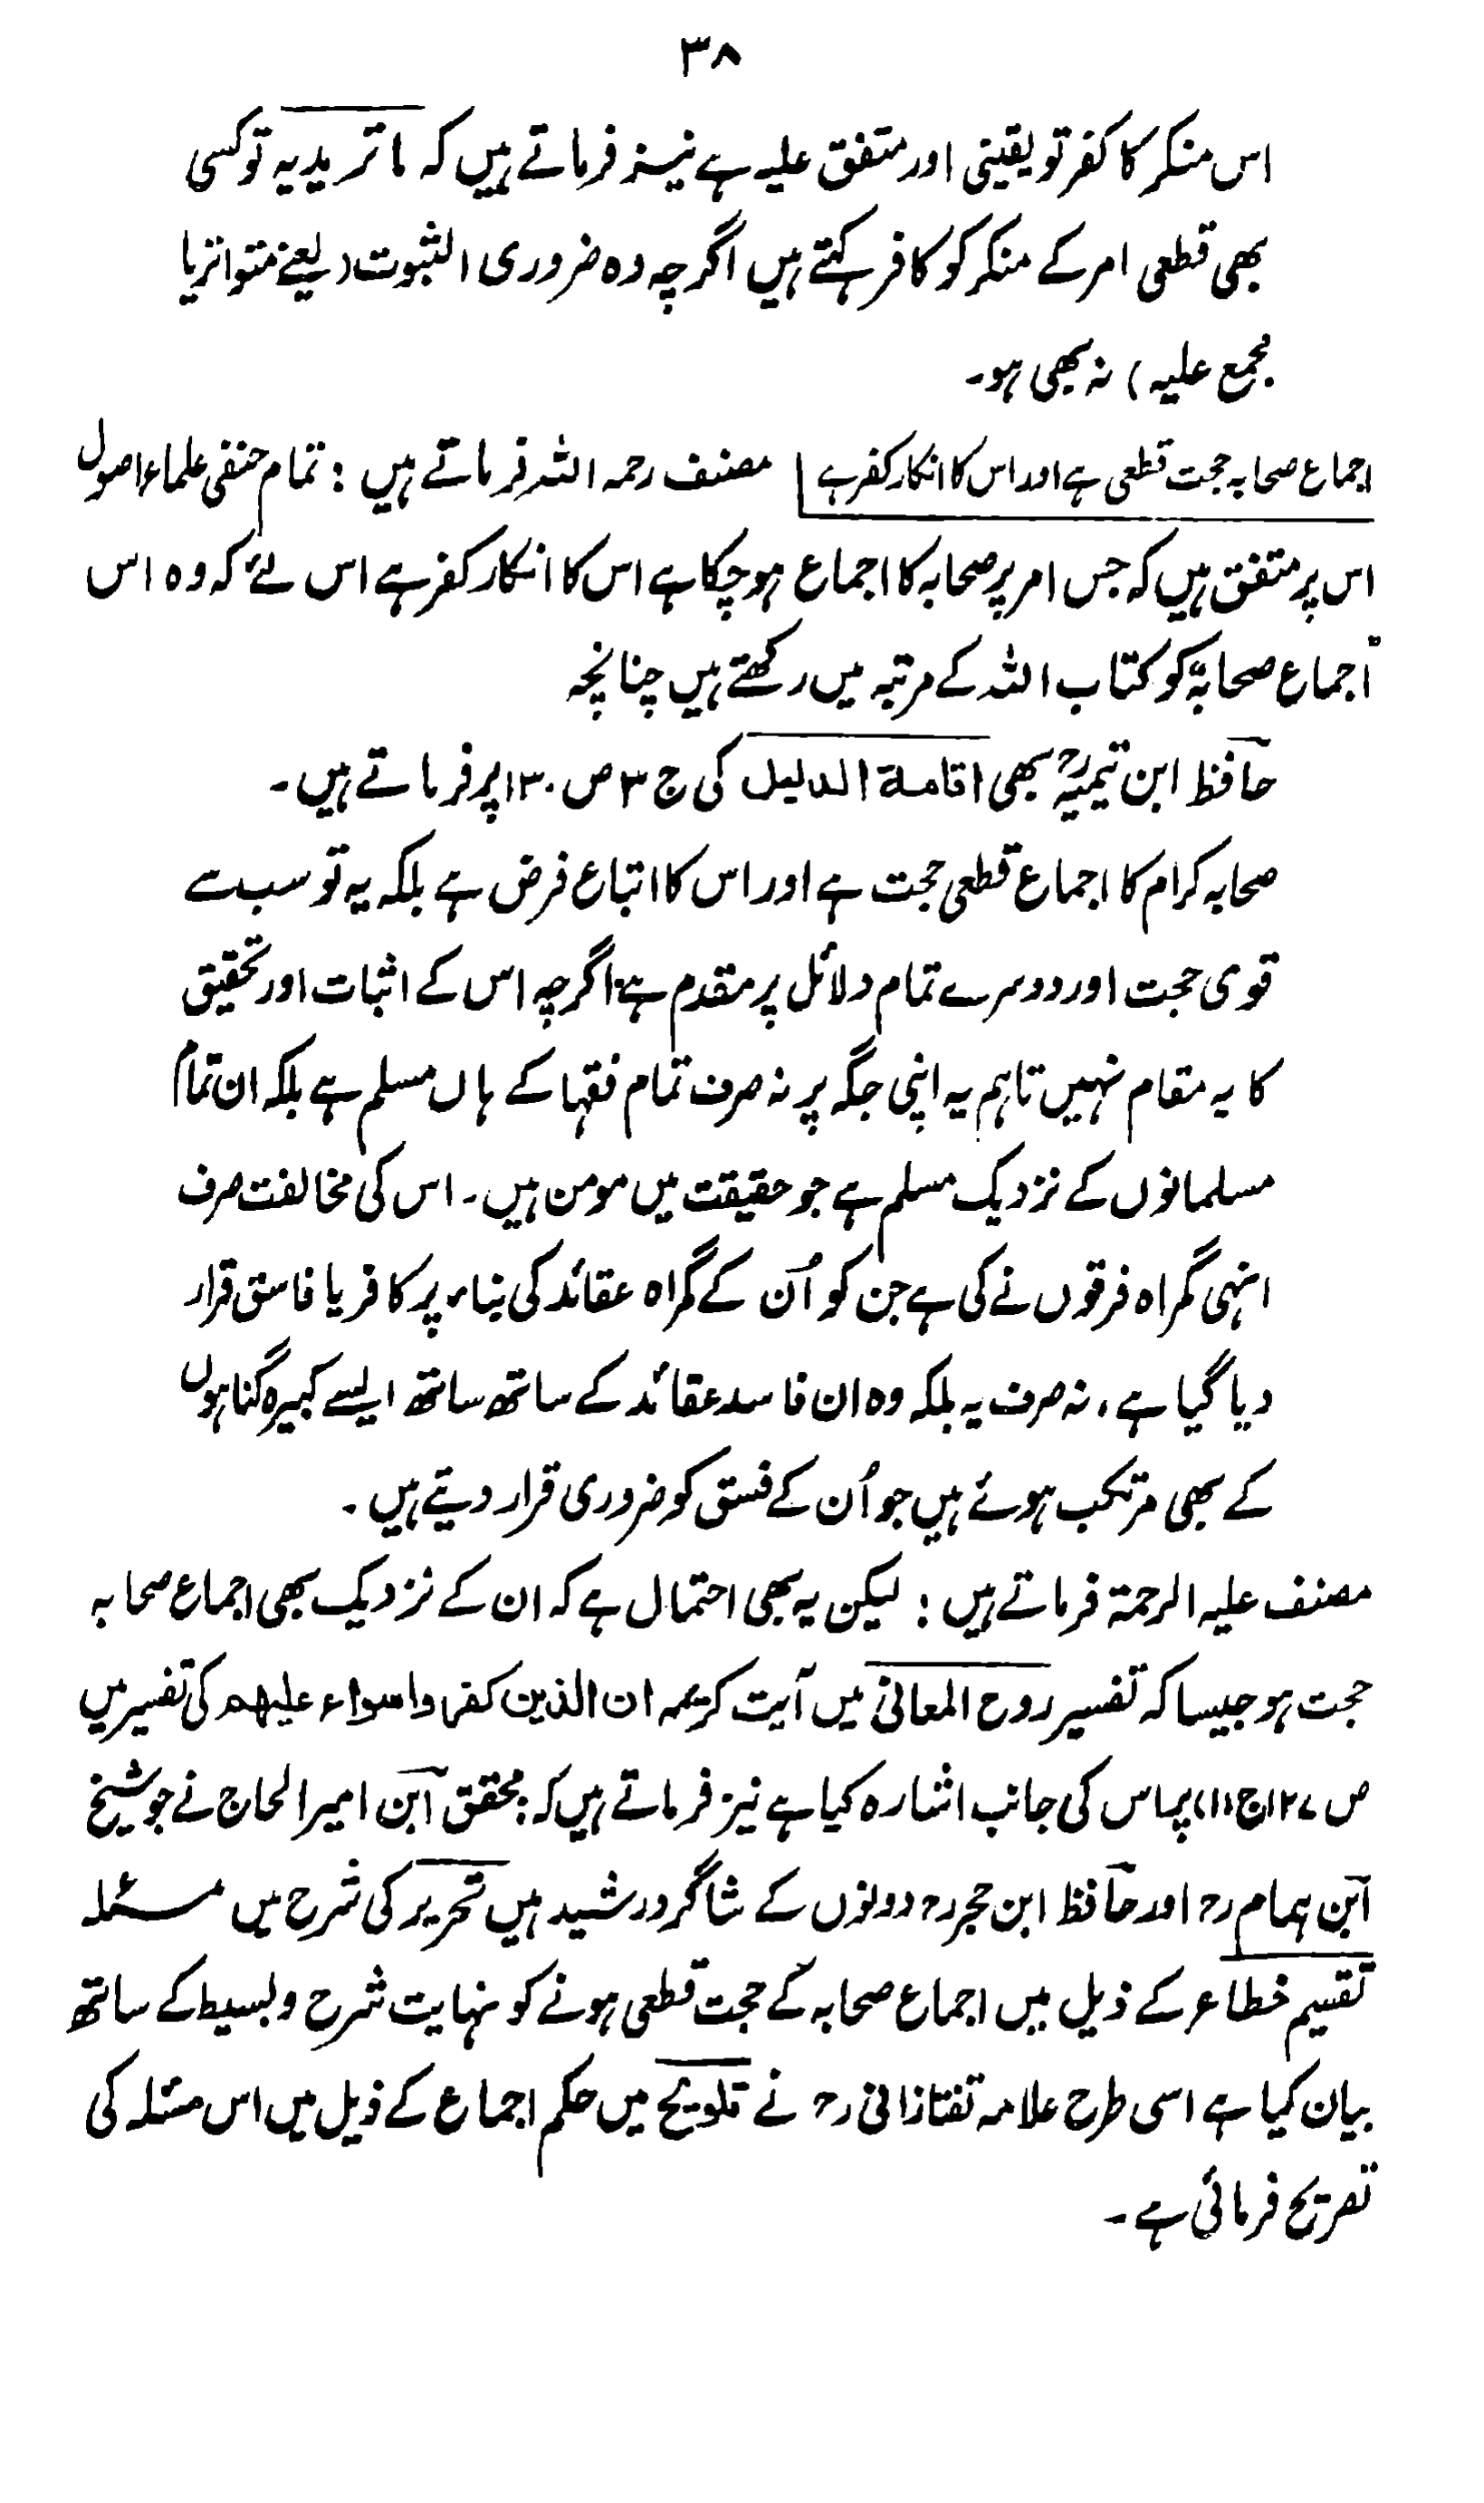 ۳۸
اس منکر کا کفر تو یقینی اور متفق علیہ ہے نیز فرماتے ہیں کہ ماتریدیہ تو کسی
بھی قطعی امر کے منکر کو کافر کہتے ہیں اگرچہ وہ ضروری الثبوت (یعنے متواتر یا
مجمع علیہ) نہ بھی ہو۔
اجماع صحابہ حجت قطعی ہے اور اس کا انکار کفر ہے مصنف رحمہ اللہ فرماتے ہیں : تمام حنفی علماء اصول
اس پر متفق ہیں کہ جس امر پر صحابہ کا اجماع ہو چکا ہے اس کا انکار کفر ہے اس لئے کہ وہ اس
"اجماع صحابہؓ کو کتاب اللہ کے مرتبہ میں رکھتے ہیں چنانچہ
حافظ ابن تیمیہؒ بھی اقامۃ الدلیل کی ج ۳ ص ۱۳۰ پر فرماتے ہیں۔
صحابہ کرام کا اجماع قطعی حجت ہے اور اس کا اتباع فرض ہے بلکہ یہ تو سب سے
قوی حجت اور دوسرے تمام دلائل پر مقدم ہے: اگرچہ اس کے اثبات اور تحقیق
کا یہ مقام نہیں تاہم یہ اپنی جگہ پر نہ صرف تمام فقہا کے ہاں مسلم ہے بلکہ ان تمام
مسلمانوں کے نزدیک مسلم ہے جو حقیقت میں مومن ہیں۔ اس کی مخالفت صرف
انہی گمراہ فرقوں نے کی ہے جن کو اُن کے گمراہ عقائد کی بناء پر کافر یا فاسق قرار
دیا گیا ہے، نہ صرف یہ بلکہ وہ ان فاسد عقائد کے ساتھ ساتھ ایسے کبیرہ گناہوں
کے بھی مرتکب ہوئے ہیں جو اُن کے فسق کو ضروری قرار دیتے ہیں۔
مصنف علیہ الرحمۃ فرماتے ہیں : لیکن یہ بھی احتمال ہے کہ ان کے نزدیک بھی اجماع صحابہ
حجت ہو جیسا کہ تفسیر روح المعانی میں آیت کریمہ ان الذین کفروا سواء علیھم کی تفسیر میں
ص ۱۲۷ ج (۱)، پر اس کی جانب اشارہ کیا ہے نیز فرماتے ہیں کہ: محقق ابن امیر الحاج نے جو شیخ
ابن ہمامؒ اور حافظ ابن حجرؒ دونوں کے شاگرد رشید ہیں تحریر کی شرح میں مسئلہ
تقسیم خطاء کے ذیل میں اجماع صحابہ کے حجت قطعی ہونے کو نہایت شرح و بسیط کے ساتھ
بیان کیا ہے اسی طرح علامہ تفتازانیؒ نے تلویح میں حکم اجماع کے ذیل میں اس مسئلہ کی
تصریح فرمائی ہے۔